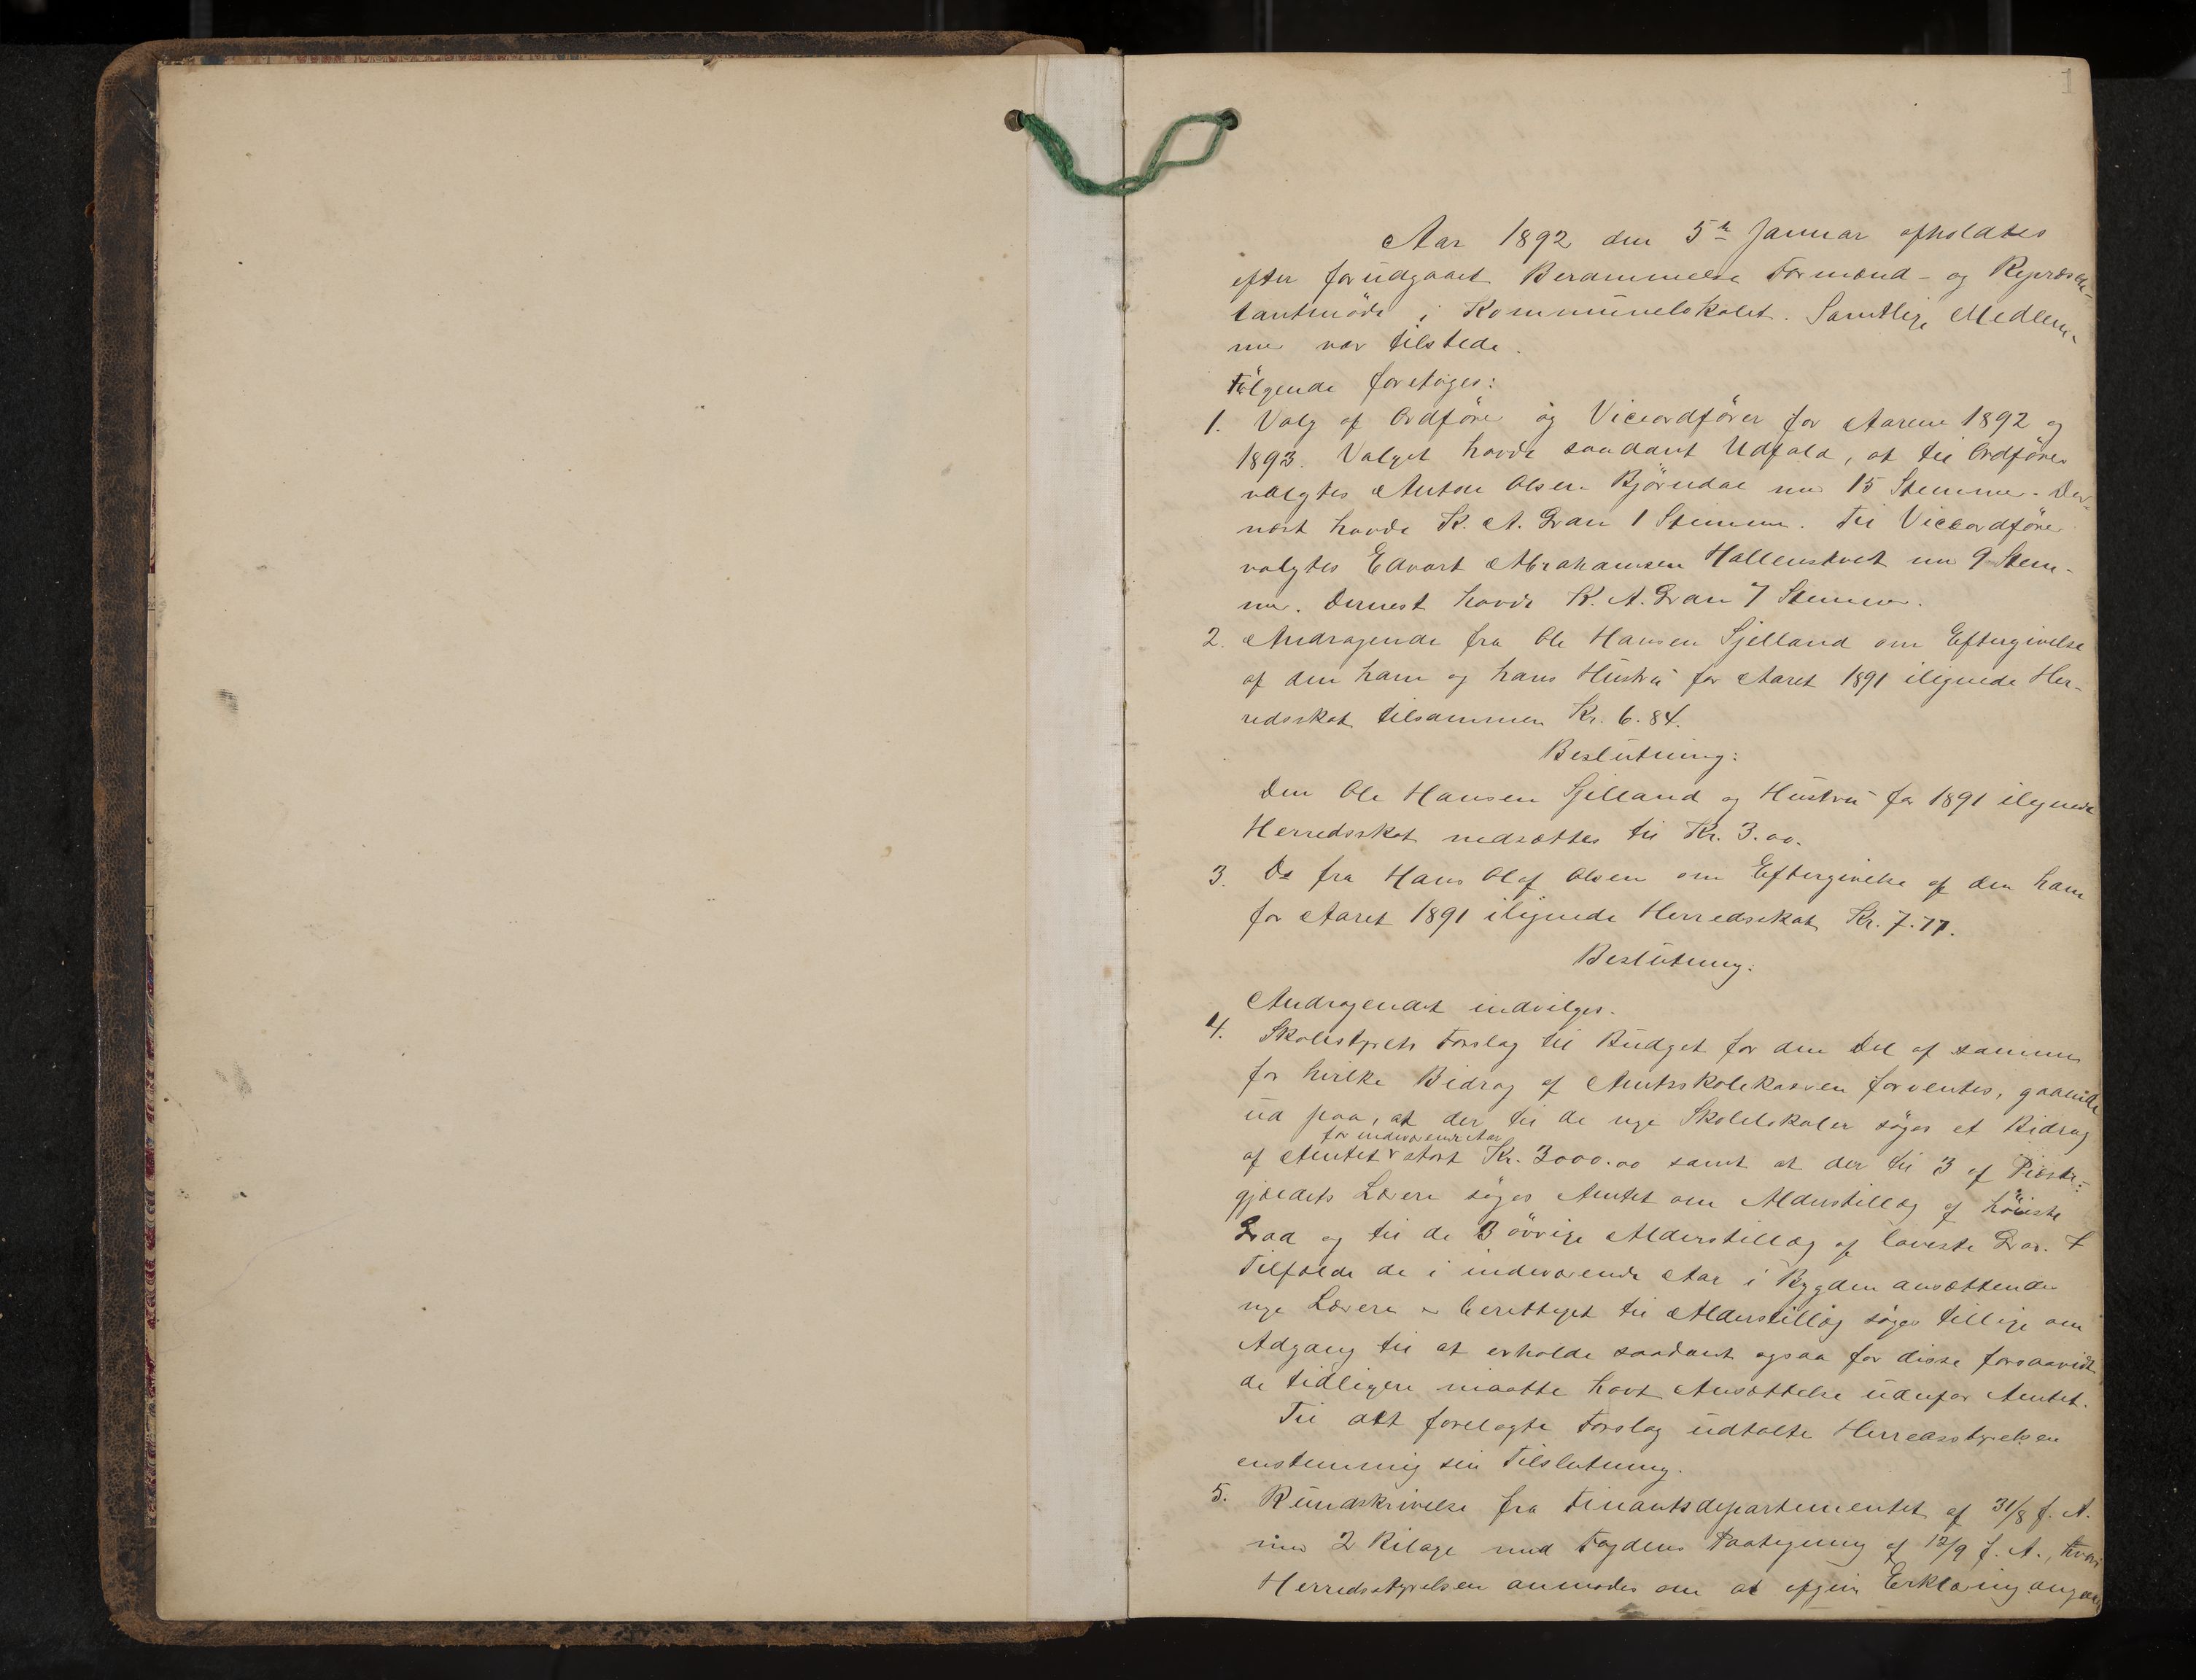 1
Aar 1892 den 5te Januar afholdtes
efter forudgaaet Berammelse Formænd- og Repræsen-
tantmöde i Kommunelokalet. Samtlige Medlem-
mer var tilstede.
Fölgende foretoges:
1. Valg af Ordförer og Viceordförer for Aarene 1892 og
1893. Valget havde saadant Udfald, at til Ordförer
valgtes Anton Olsen Björndal med 15 Stemmer. Der-
næst havde K. A. Gran 1 Stemme. Til Viceordförer
valgtes Edvart Abrahamsen Hallenstvet med 9 Stem-
mer. Dernest havde K. A. Gran 7 Stemmer.
2. Andragende fra Ole Hansen Sjelland om Eftergivelse
af den ham og hans Hustru for Aaret 1891 ilignede Her-
redsskat tilsammen Kr. 6.84.
Beslutning:
Den Ole Hansen Sjelland og Hustru for 1891 ilignede
Herredsskat nedsættes til Kr. 3.00.
3. Do fra Hans Olaf Olsen om Eftergivelse af den ham
for Aaret 1891 ilignede Herredsskat Kr. 7.77.
Beslutning:
Andragendet indvilges.
4. Skolestyrets Forslag til Budget for den Del af samme
for hvilke Bidrag af Amtsskolekassen forventes, gaaende
ud paa, at der til de nye Skolelokaler söges et Bidrag
for indeværende Aar
af Amtet stort Kr. 3000.00 samt at der til 3 af Præste-
gjældets Lærere söges Amtet om Alderstillæg af höieste
Grad og til de 3 övrige Alderstillæg af laveste Grad. I
Tilfælde de i indeværende Aar i Bygden ansættende
nye Lærere er berettiget til Alderstillæg söges tillige om
Adgang til at erholde saadant ogsaa for disse forsaavidt
de tidligere maatte havt Ansættelse udenfor Amtet.
Til det forelagte Forslag udtalte Herredsstyrelsen
enstemmig sin Tilslutning.
5. Rundskrivelse fra Finantsdepartementet af 31/8 f. A.
med 2 Bilage med Fogdens Paategning af 12/9 f. A., hvori
Herredsstyrelsen anmodes om at afgive Erklæring angaa-